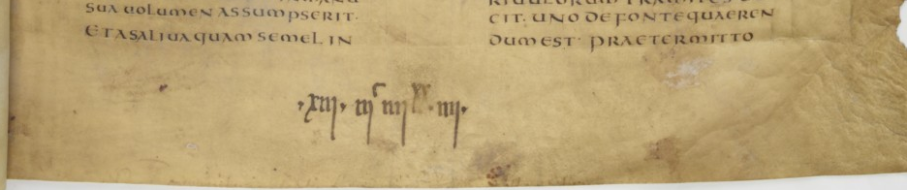 SUA UOLUMEN ASSUMPSERIT·
ET A SALIUA QUAM SEMEL IN
CIT· UNO DE FONTE QUAEREN
DUM EST· PRAETERMITTO
·xiij· iijᶜ iiijˣˣ·iiij·